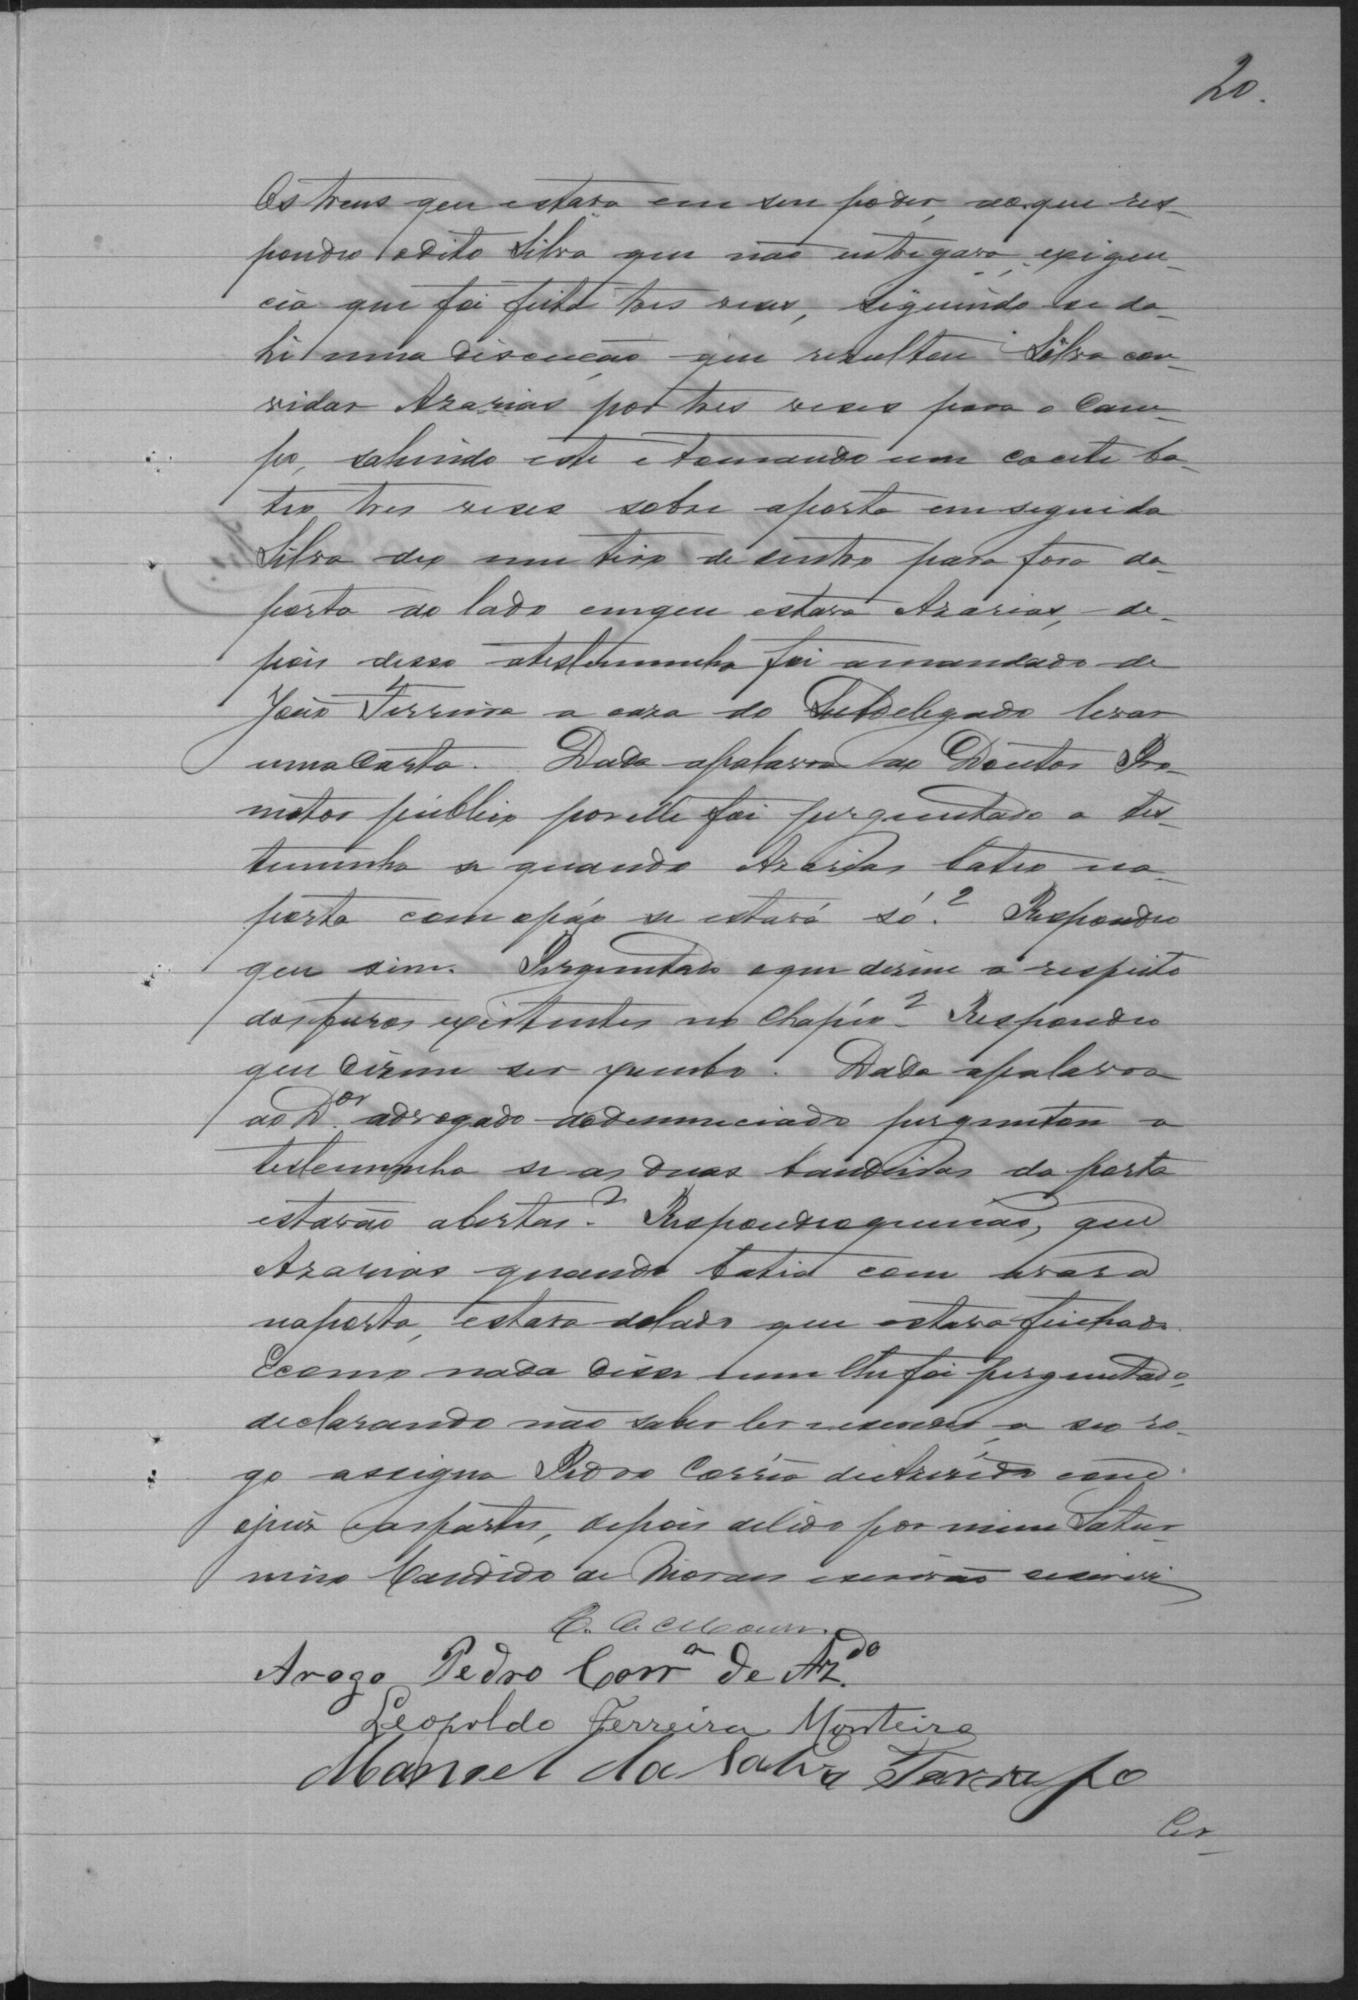 20.
Os trens que estava em seu poder, ao que res-
pondeo o dito Silva que não entregava, exigen-
cia que foi feita tres vezes, seguindo se da-
hi uma discucção que resultou Silva con-
vidar Azarias por tres veses para o Cam-
po, sahindo este e tomando um cacete ba-
teo tres veses sobre aporta em seguida
Silva deo um tiro de dentro para fora da
porta do lado em que estava Azarias, de-
pois desso atestemunha foi amandado de
João Ferreira a caza do Subdelegado levar
uma Carta. Dada apalavra ao Doutor Pro-
motor publico por elle foi perguntado a tes-
temunha se quando Azarias bateo na
porta com opáo se estava só? Respondeo
que sim. Perguntado o que disem a respeito
dos furos existentes no Chapéo? Respondeo
que dizem ser xumbo. Dada apalavra
ao Dor. advogado do denunciado perguntou a
testemunha se as duas bandeiras da porta
estavão abertas? Respondeo que não, que
Azarias quando batia com a vara
na porta, estava do lado que estava fechado.
E como nada disse e nem lhe foi perguntado,
declarando não saber ler e escrever, a seo ro-
go assigna Pedro Corrêa de Azerêdo com
o juiz e as partes, depois de lido por mim Satur-
nino Candido de Moraes escrivão escrevi
Arogo Pedro Corra de Az.do
Leopoldo Ferreira Monteiro
Manoel da Silva Farrapo
Cer-